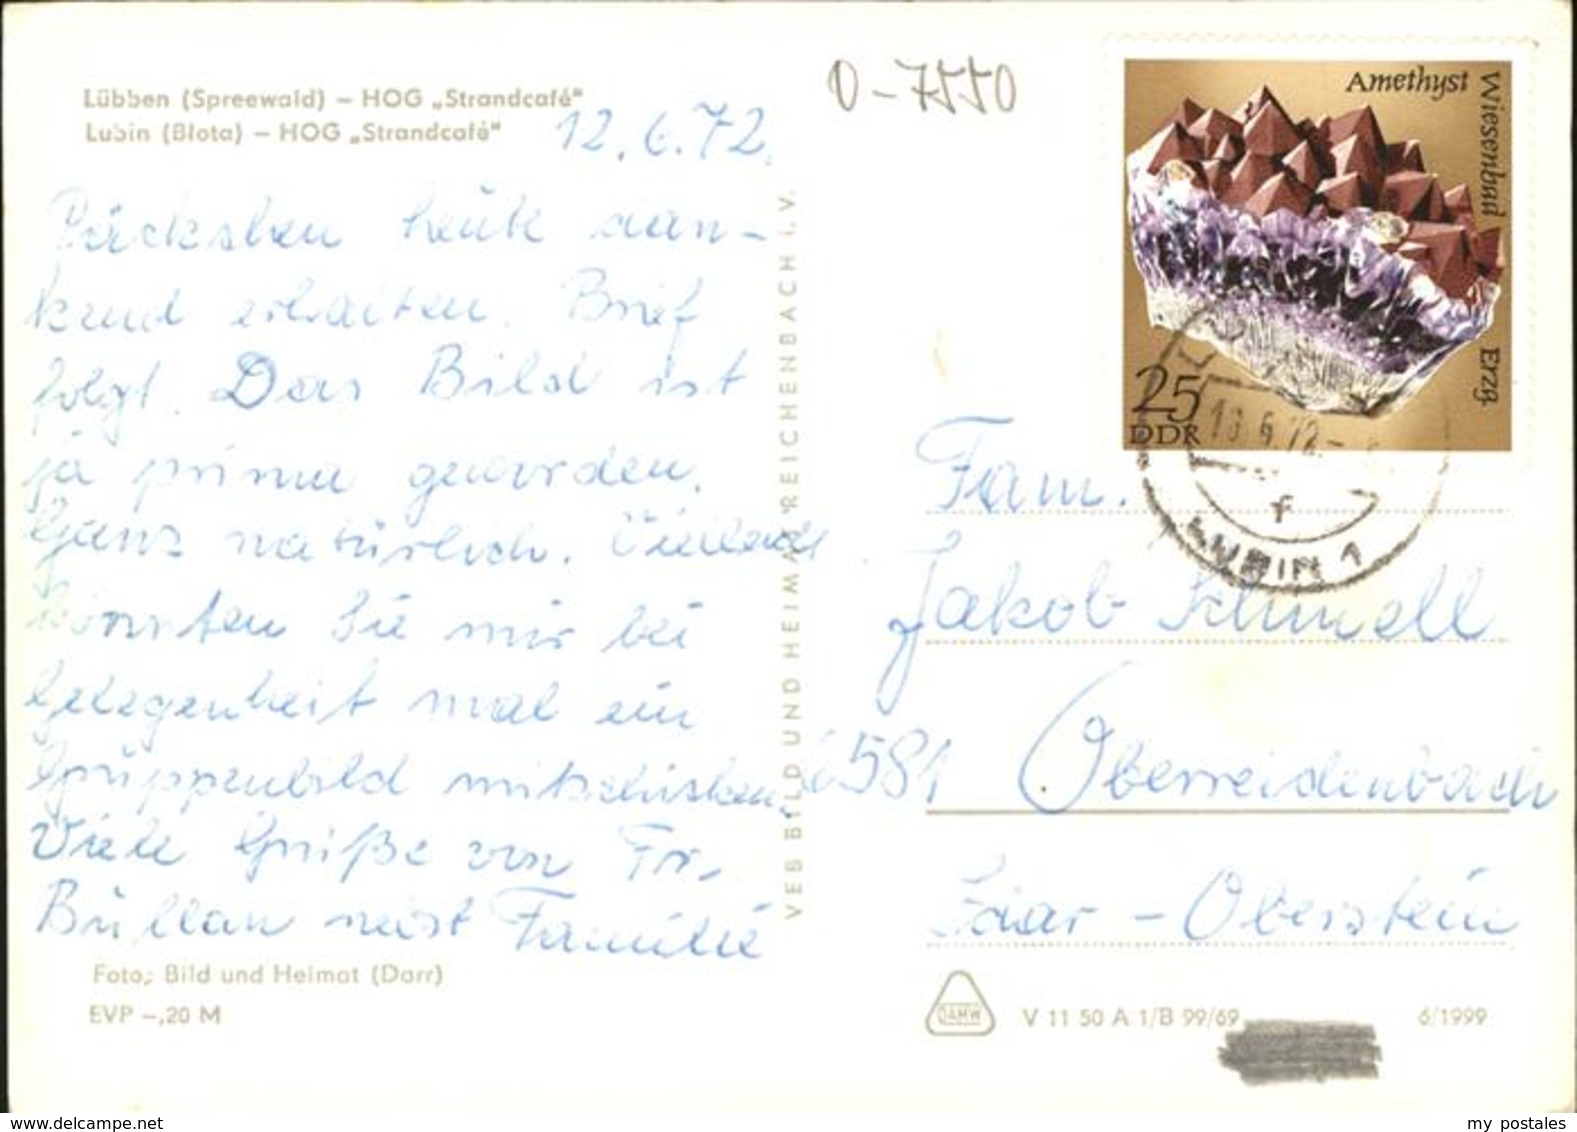 Lübben (Spreewald) – HOG „Strandcafé"
Lubin (Błota) – HOG „Strandcafé"
12.6.72.
0-7550
Päckchen heute dan-
kend erhalten. Brief
folgt. Das Bild ist
ja prima geworden.
Ganz natürlich. Vielleicht
könnten Sie mir bei
Gelegenheit mal ein
Gruppenbild mitschicken.
Viele Grüße von Fr.
Bullan nebst Familie
Foto: Bild und Heimat (Darr)
EVP –,20 M
VEB BILD UND HEIMAT REICHENBACH I. V.
Amethyst
Wiesenbad
Erzg.
25
DDR
6.72
f
LUBIN 1
Fam.
Jakob Schmell
6581 Oberreidenbach
Idar-Oberstein
DAMW
V 11 50 A 1/B 99/69
6/1999
www.delcampe.net
my postales